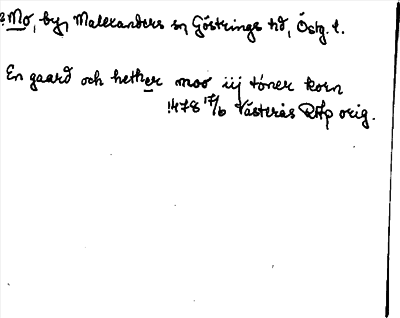 ?Mo, by, Malexanders sn Göstrings hd, Östg. l.
En gaard och hether moo iij tóner korn
1478 17/6 Västerås RAp orig.